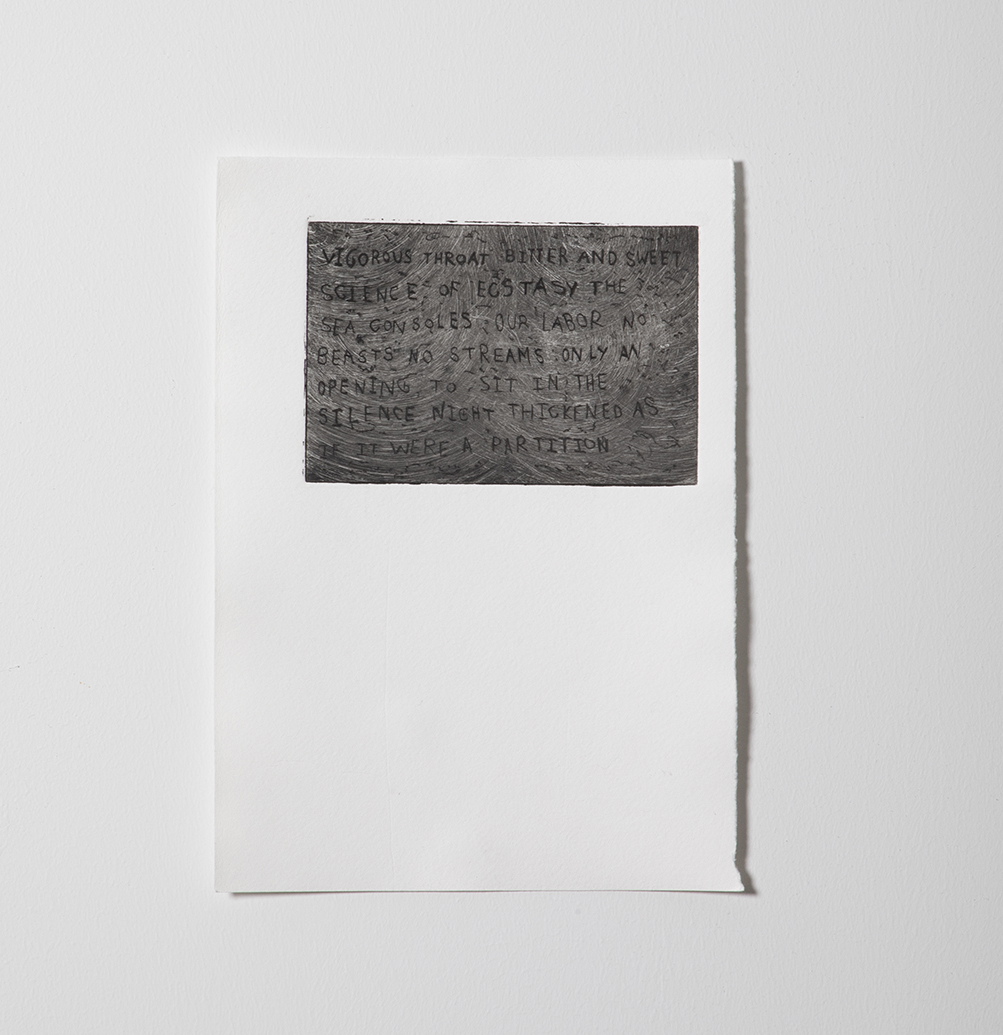 VIGOROUS THROAT BITTER AND SWEET
SCIENCE OF ECSTASY THE
SEA CONSOLES OUR LABOR NO
BEASTS NO STREAMS ONLY AN
OPENING TO SIT IN THE
SILENCE NIGHT THICKENED AS
IF IT WERE A PARTITION